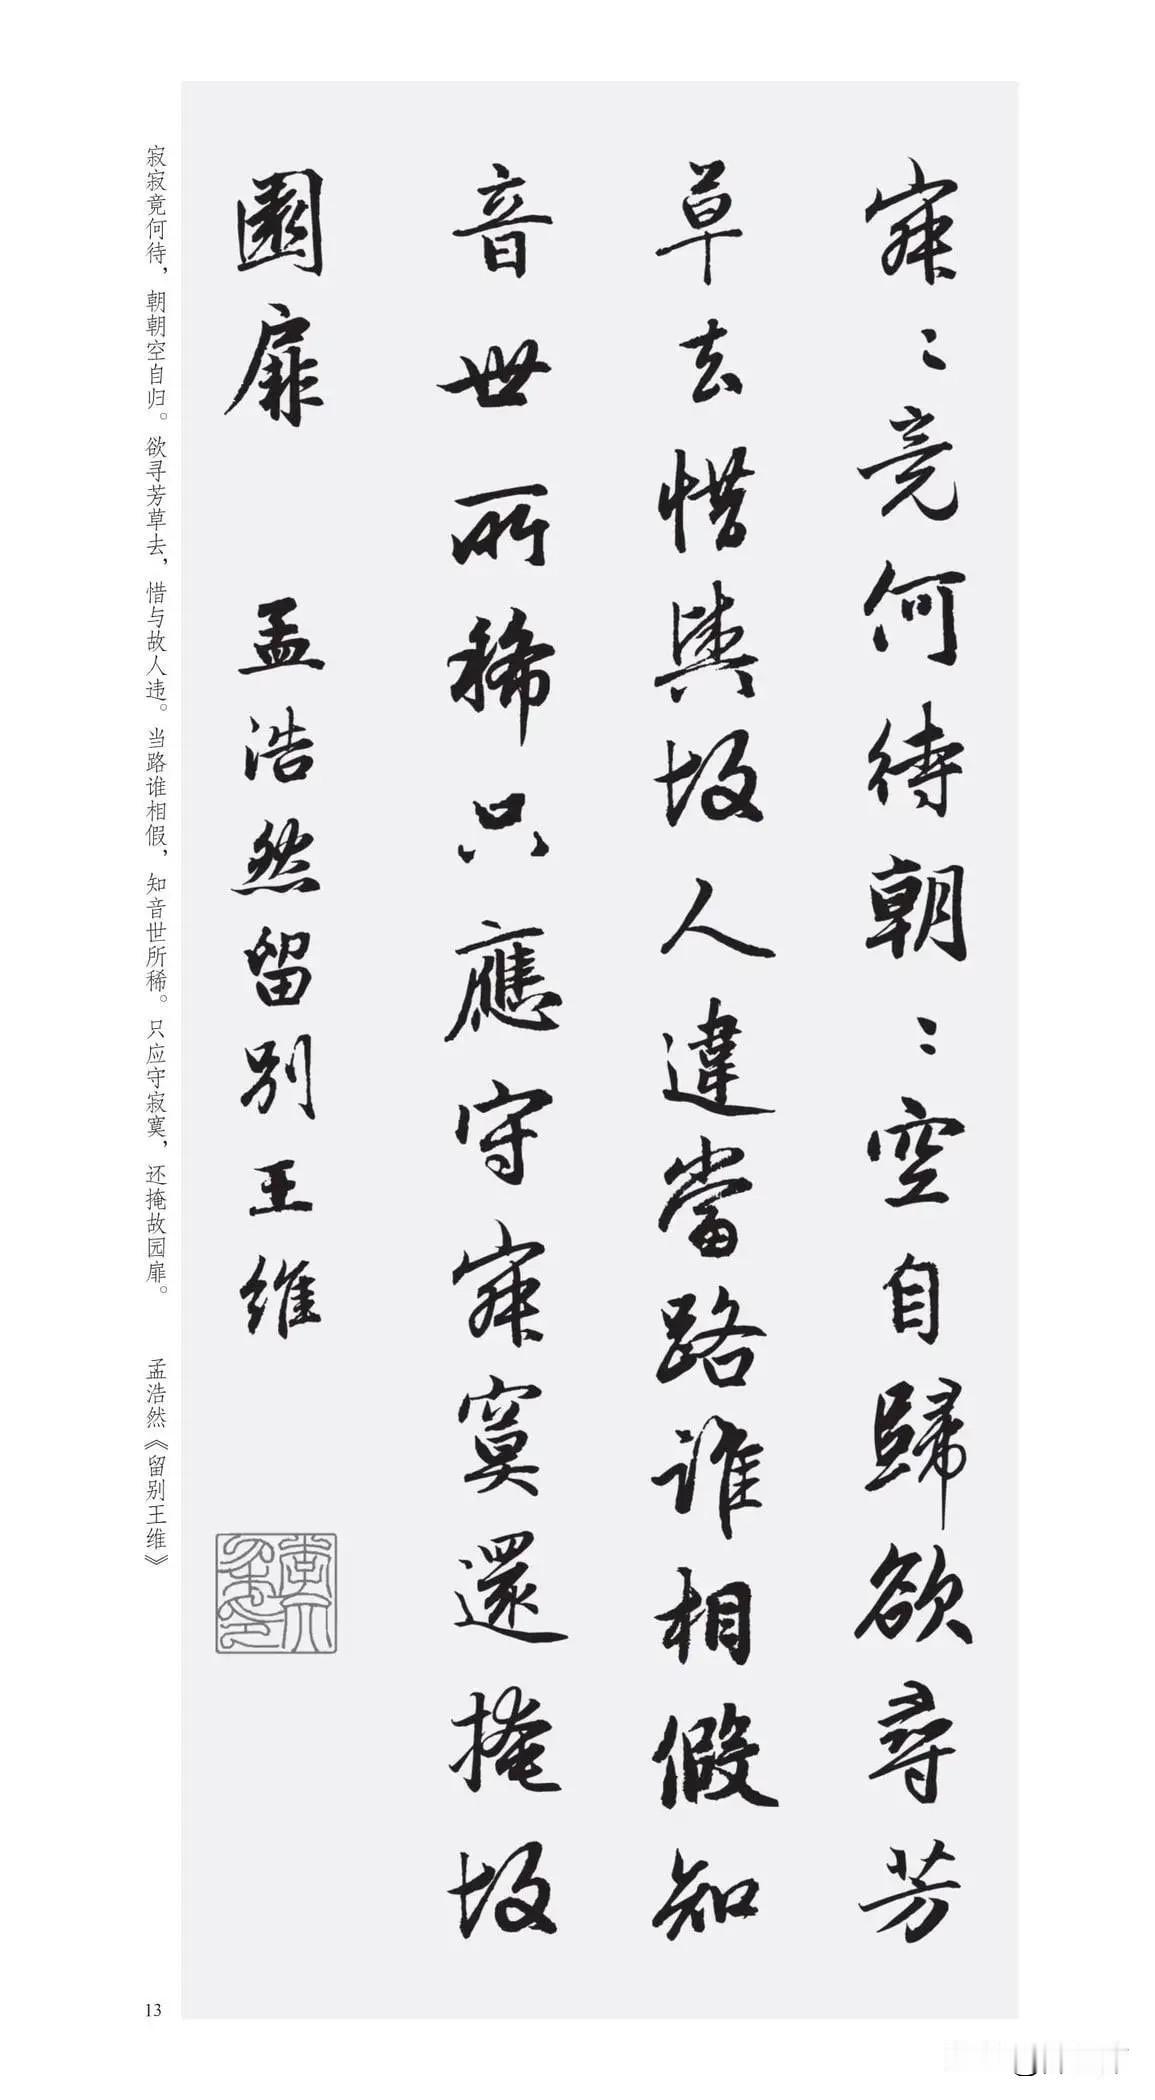 寂〻竟何待朝〻空自歸欲尋芳
草去惜與故人違當路誰相假知
音世所稀只應守寂寞還掩故
園扉 孟浩然留别王維
寂寂竟何待，朝朝空自归。欲寻芳草去，惜与故人违。当路谁相假，知音世所稀。只应守寂寞，还掩故园扉。 孟浩然《留别王维》
13